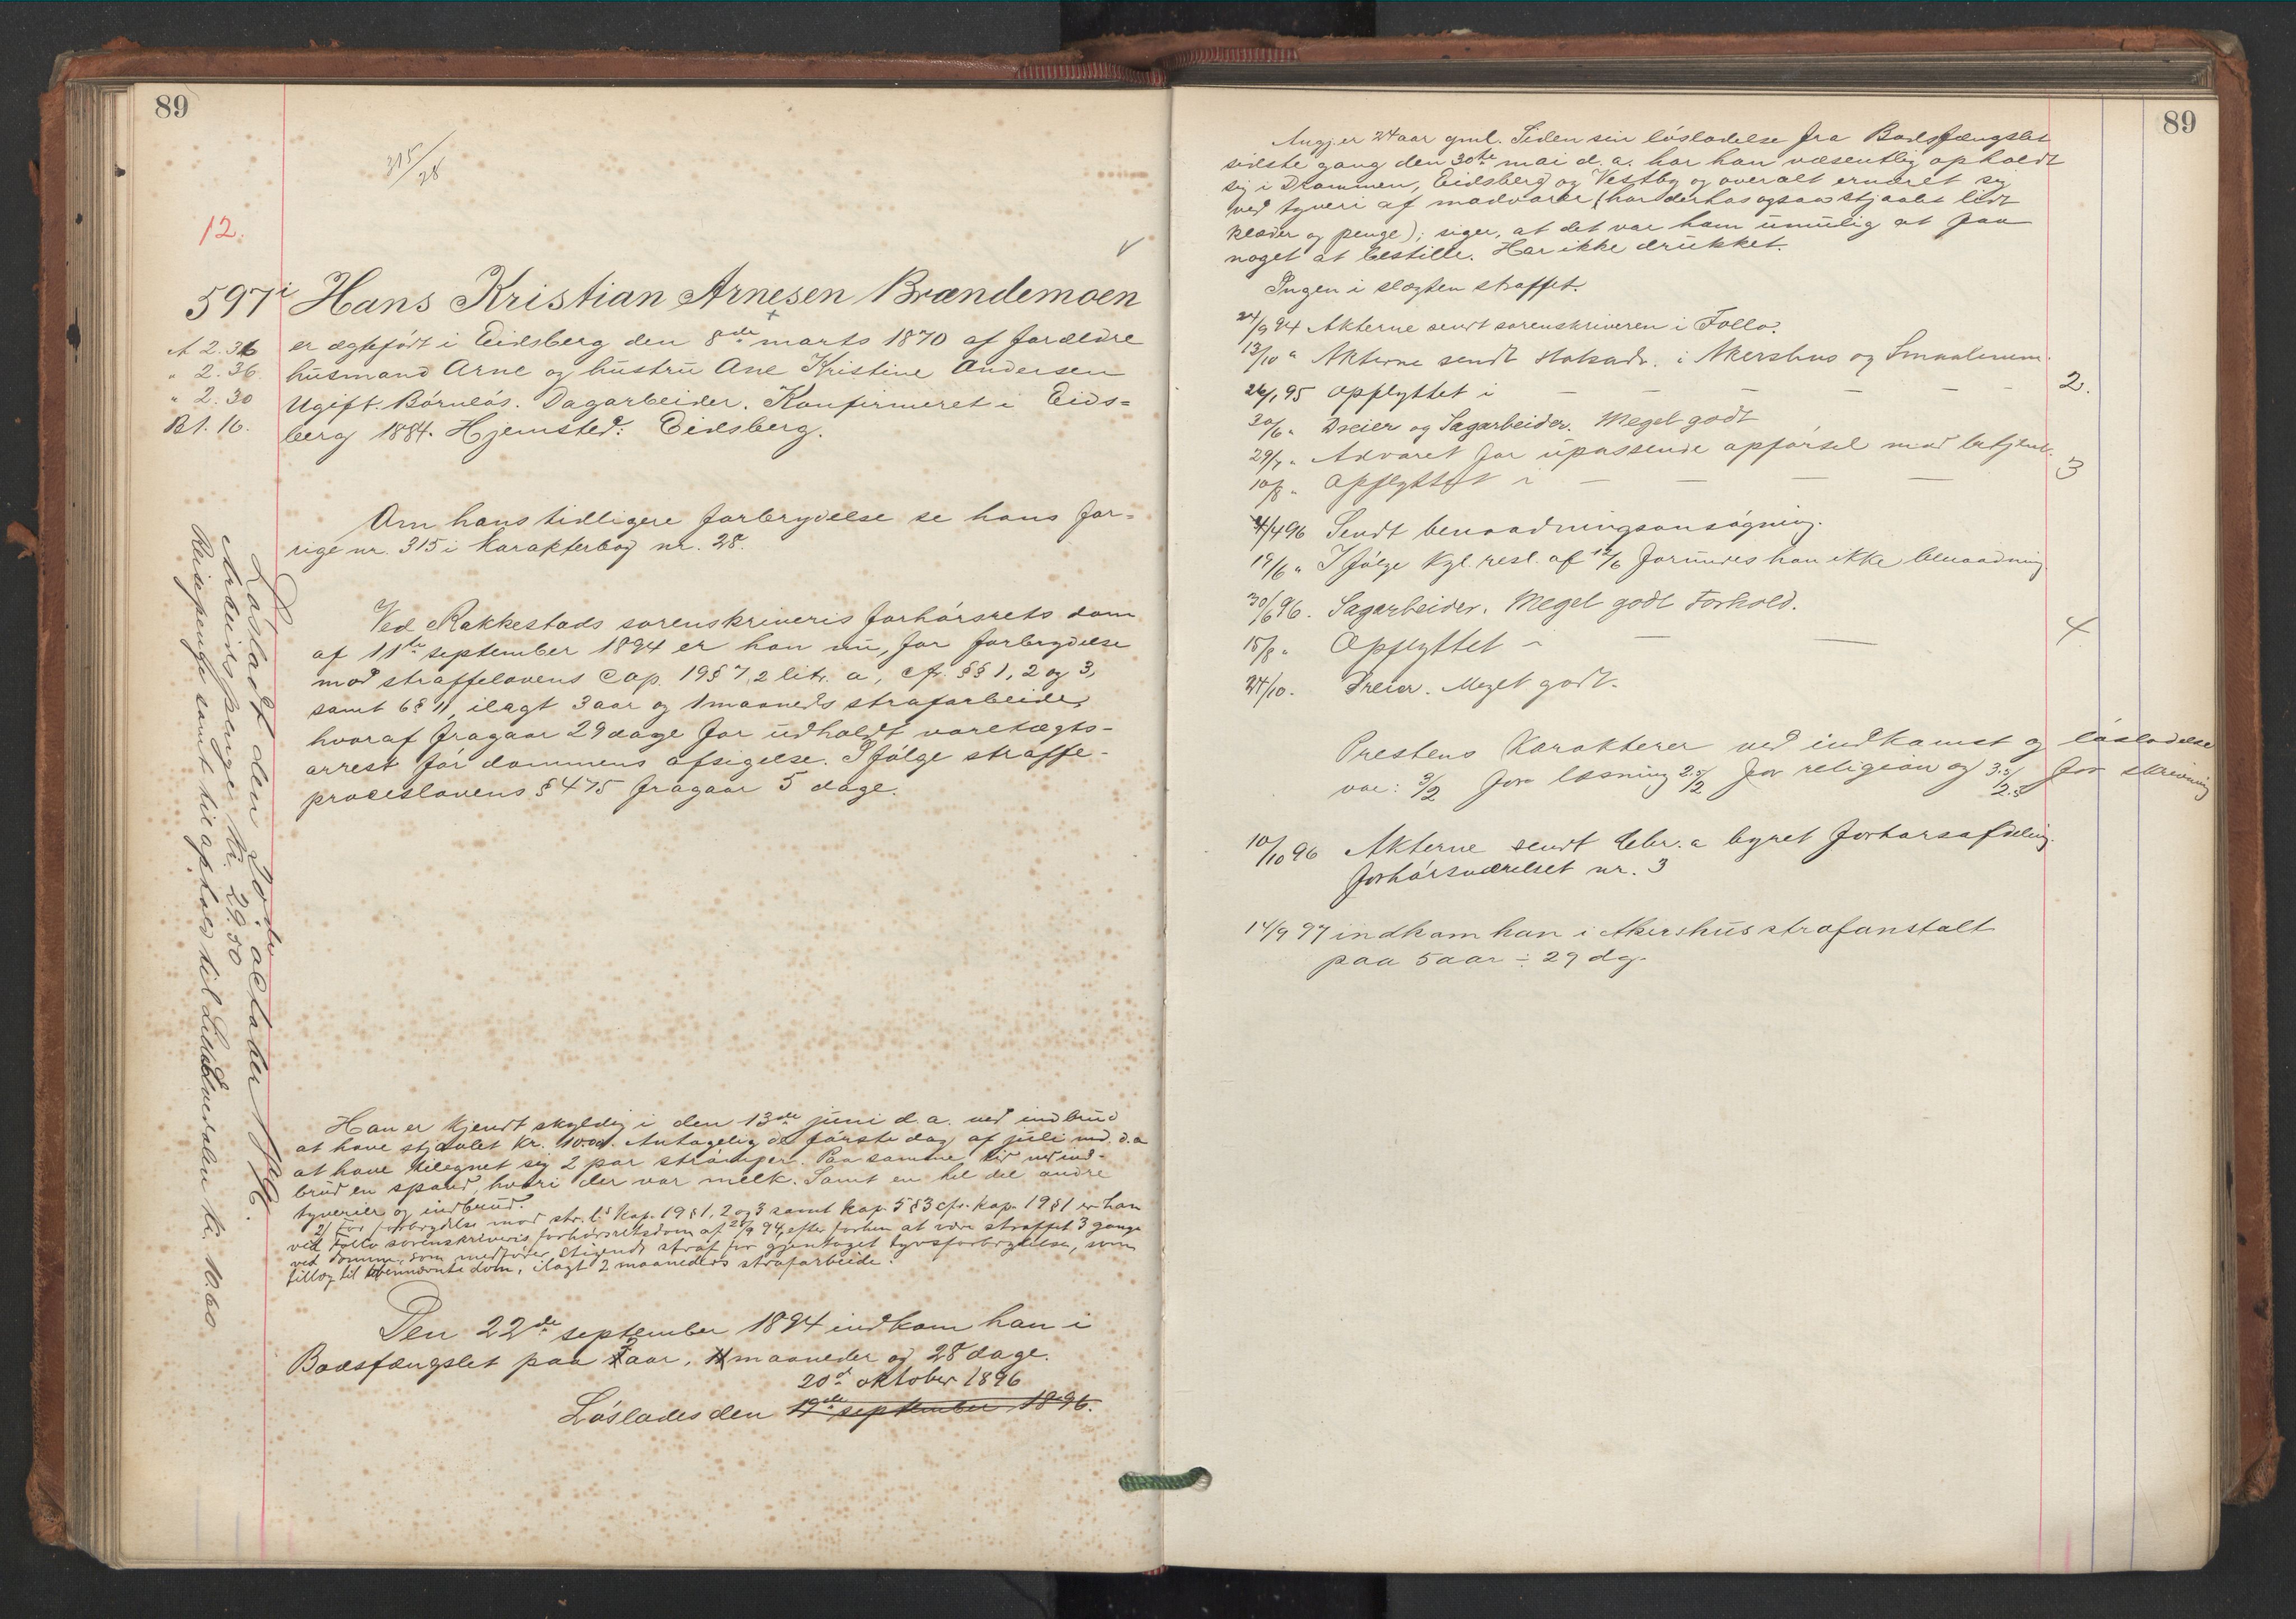 89
315/28
12.
597 i Hans Kristian Arnesen Brændemoen
A 2.36
" 2.36.
" 2.30
B 1.16.
er ægtefødt i Eidsberg den 8de marts 1870 af forældre
husmand Arne og hustru Ane Kristine Andersen
Ugift. Børnløs. Dagarbeider. Konfirmeret i Eids=
berg 1884. Hjemsted: Eidsberg.
Om hans tidligere forbrydelse se hans for=
rige nr. 315 i Karakterbog nr. 28.
Ved Rakkestads sorenskriveris forhørsrets dom
af 11te september 1894 er han nu, for forbrydelse
mod straffelovens Cap. 19 § 7, 2 litr. a, cfr. §§ 1, 2 og 3,
samt 6 § 11, ilagt 3 aar og 1 maaneds strafarbeide,
hvoraf fragaar 29 dage for udholdt varetægts-
arrest før dommens afsigelse. Ifølge straffe-
proceslovens § 475 fragaar 5 dage.
Løsladt den
Arbeidspenge kr. 29.50
Reisepenge samt til ophold til kr. 10.60
Han er kjendt skyldig i den 13de juni d.a. ved indbrud
at have stjaalet kr. Antagelig de første dag af juli md. d.a
at have tilegnet sig 2 par strømper. Paa samme tid ved ind-
brud en spand, hvori der var melk. Samt en hel del andre
tyverier og indbrud.
2/ For forbrydelse mod str. l's Kap. 19 § 1, 2 og 3 samt Kap. 5 § 3 cfr. Kap. 19 § 1 er han
ved Follo sorenskriveris forhørsretsdom af 28/9 94, efter forhen at være straffet 3 gange
ved domme, som medfører stigende straf for gjentaget tyvsforbrydelse, som
tillæg til ovennævnte dom, ilagt 2 maaneders strafarbeide.
Den 22de september 1894 indkom han i
Bodsfængslet paa aar, maaneder og 28 dage.
20de oktober 1896
Løslades den 19de september 1896.
89
Angj. er 24 aar gml. Siden sin løsladelse fra Bodsfængslet
sidste gang den 30te mai d.a. har han væsentlig opholdt
sig i Drammen, Eidsberg og Vestby og overalt ernæret sig
ved tyveri af madvarer (har derhos ogsaa stjaalet lidt
klæder og penge); siger, at det var ham umulig at faa
noget at bestille. Har ikke drukket.
Ingen i slægten straffet.
24/9 94 Akterne sendt sorenskriveren i Follo.
13/10 " Akterne sendt statsadv. i Akershus og Smaalenene.
26/1 95 Opflyttet i — — — — — 2.
30/6 " Dreier og Sagarbeider. Meget godt
29/7 " Advaret for upassende opførsel mod betjent.
10/8 " Opflyttet i — — — — 3
4/4 96 Sendt benaadningsansøgning.
19/6 " Ifølge Kgl. resl. af 12/6 forundes han ikke benaadning
30/6 96. Sagarbeider. Meget godt Forhold.
15/8 " Opflyttet i — — 4
24/10. Dreier. Meget godt.
Prestens Karakterer ved indkomst og løsladelse
var: 3/2 for læsning 2.5/2 for religion og 3.5/2.5 for skrivning
10/10 96 Akterne sendt Kr.a byret forhørsafdeling.
forhørsværelset nr. 3
14/9 97 indkom han i Akershus strafanstalt
paa 5 aar ÷ 29 dg.